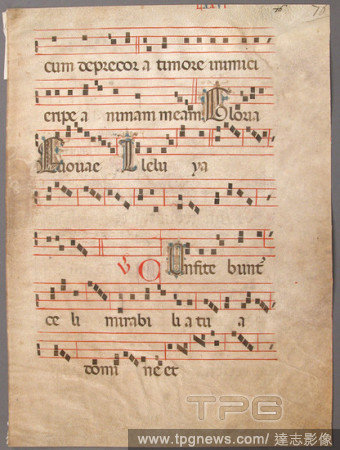 cum deprecor a timore inimici
eripe a nimam meam Gloria
Euouae llelu ya
V Confite bunt
ce li mirabi li a tu a
domi ne et
TPG
www.tpgnews.com/達志影像